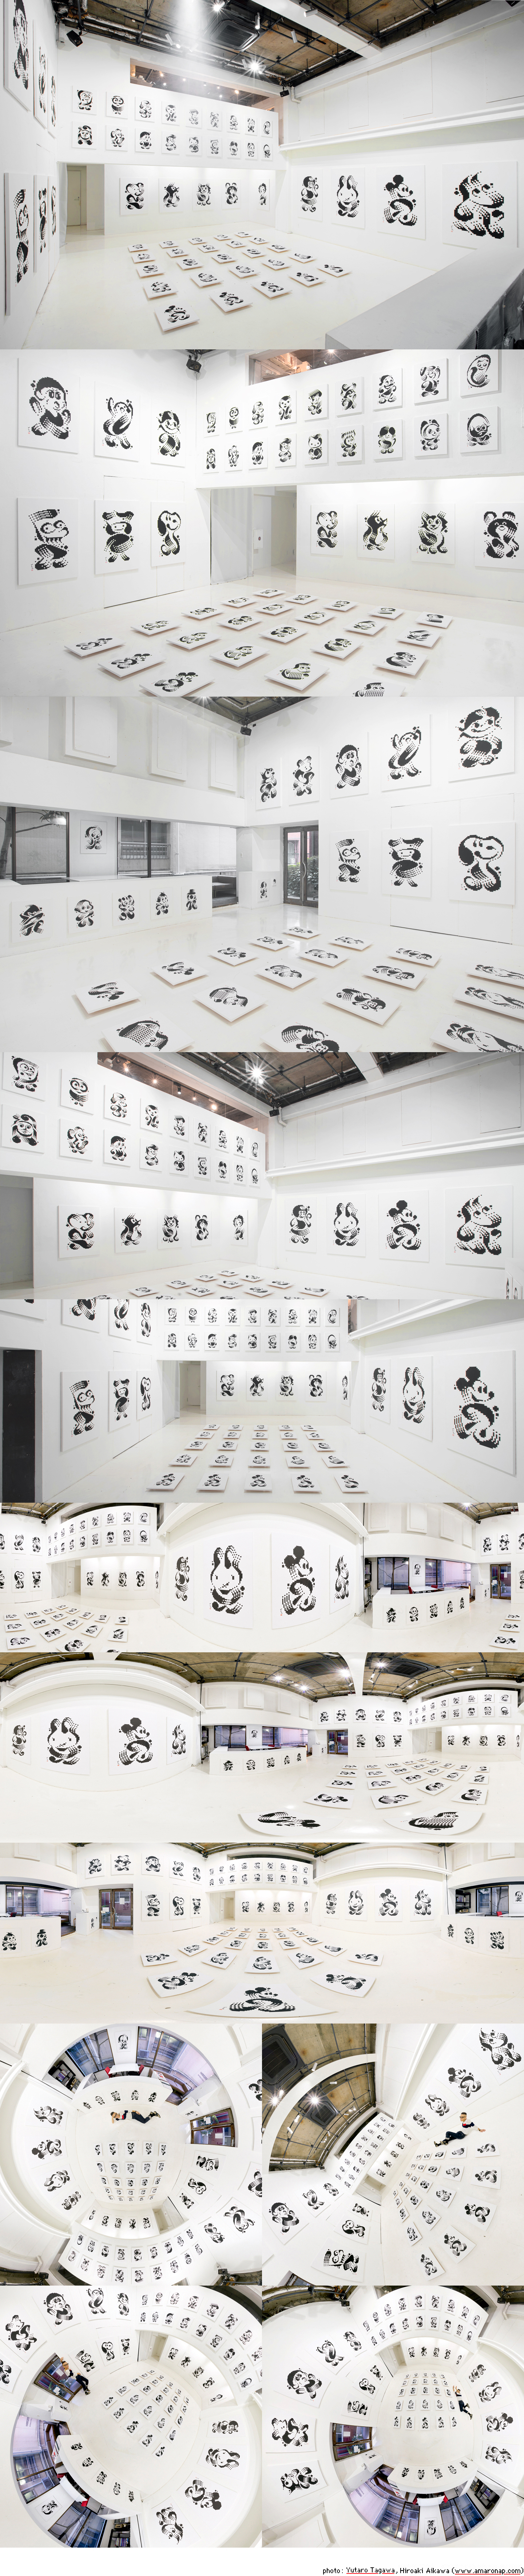 photo : Yutaro Tagawa, Hiroaki Aikawa (www.amaronap.com)